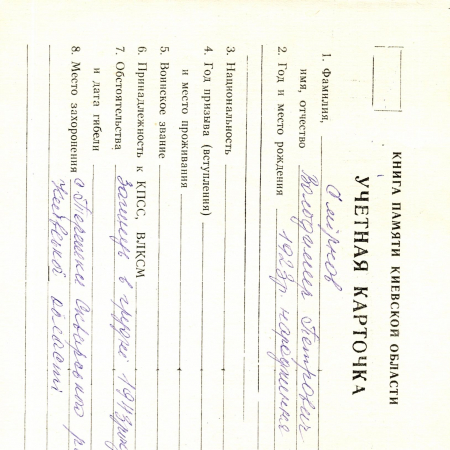 КНИГА ПАМЯТИ КИЕВСКОЙ ОБЛАСТИ
УЧЕТНАЯ КАРТОЧКА
1. Фамилия, Смірнов
имя, отчество Володимир Петрович
2. Год и место рождения 1923р. народження
3. Национальность
4. Год призыва (вступления)
и место проживания
5. Воинское звание
6. Принадлежность к КПСС, ВЛКСМ
7. Обстоятельства загинув в грудні 1943 рок
и дата гибели
8. Место захоронения с. Пегашки Сквирського р
Київської області